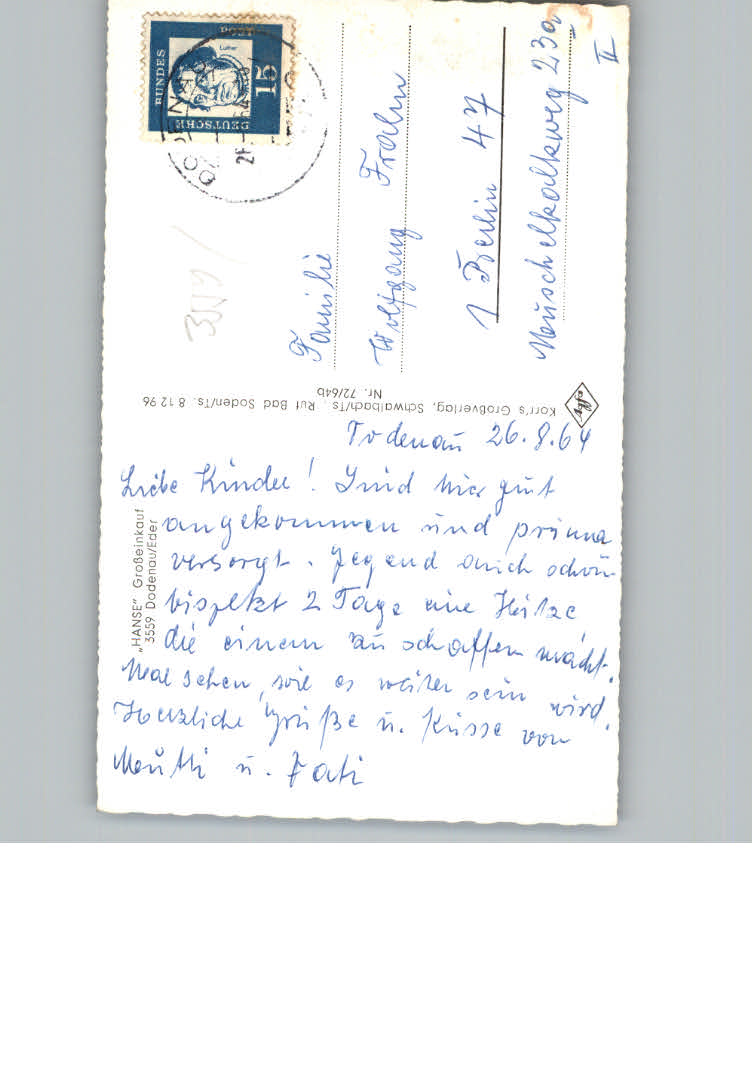 BUNDES
POST
Luther
15
DEUTSCHE
DODENAU
Familie
Wolfgang Frahm
1 Berlin 47
Muschelkalkweg 23a
II
Korr's Großverlag, Schwalbach/Ts., Ruf Bad Soden/Ts. 8 12 96
Nr. 72/64b
„HANSE" Großeinkauf
3559 Dodenau/Eder
Dodenau 26.8.64
Liebe Kinder! Sind hier gut
angekommen und prima
versorgt. Gegend auch schön
bis jetzt 2 Tage eine Hitze
die einem zu schaffen macht.
Mal sehen, wie es weiter sein wird.
Herzliche Grüße u. Küsse von
Mutti u. Vati